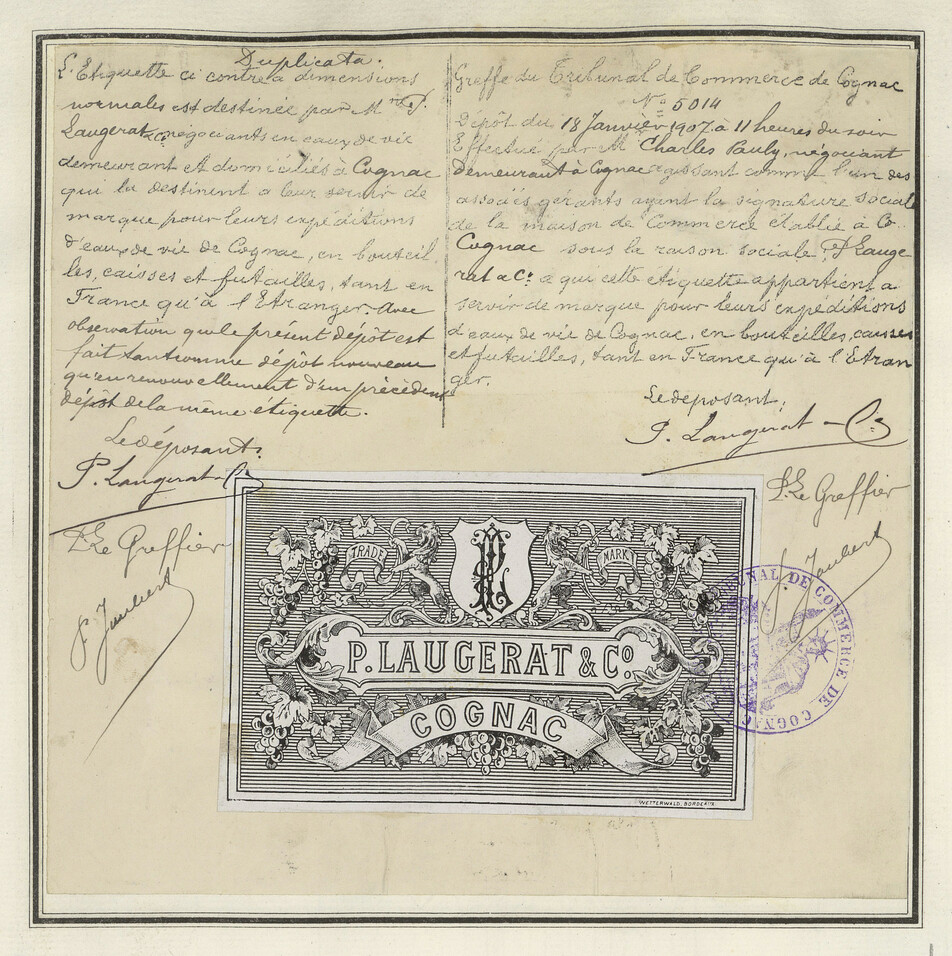 Duplicata.
L'Etiquette ci contre à dimensions
normales est destinée par Mrs P.
Laugerat & Co négociants en eaux de vie
demeurant et domiciliés à Cognac
qui la destinent a leur servir de
marque pour leurs expéditions
d'eaux de vie de Cognac, en bouteil
les, caisses et futailles, tant en
France qu'à l'Etranger. Avec
observation que le présent dépôt est
fait tant comme dépôt nouveau
qu'en renouvellement d'un précédent
dépôt de la même étiquette.
Le déposant.
P. Laugerat & Co
P. Le Greffier
Jaubert
Greffe du Tribunal de Commerce de Cognac
No 5014
Dépôt du 18 Janvier 1907 à 11 heures du soir
Effectué par M. Charles Pauly, négociant
demeurant à Cognac agissant comme l'un des
associés gérants ayant la signature sociale
de la maison de Commerce établie à Co
Cognac sous la raison sociale, P. Lauge
rat & Co à qui cette étiquette appartient a
servir de marque pour leurs expéditions
d'eaux de vie de Cognac, en bouteilles, caisses
et futailles, tant en France qu'à l'Etran
ger.
Le déposant,
P. Laugerat & Co
P. Le Greffier
Jaubert
TRADE
MARK
PL
P. LAUGERAT & Co.
COGNAC
WETTERWALD. BORDEAUX
TRIBUNAL DE COMMERCE DE COGNAC